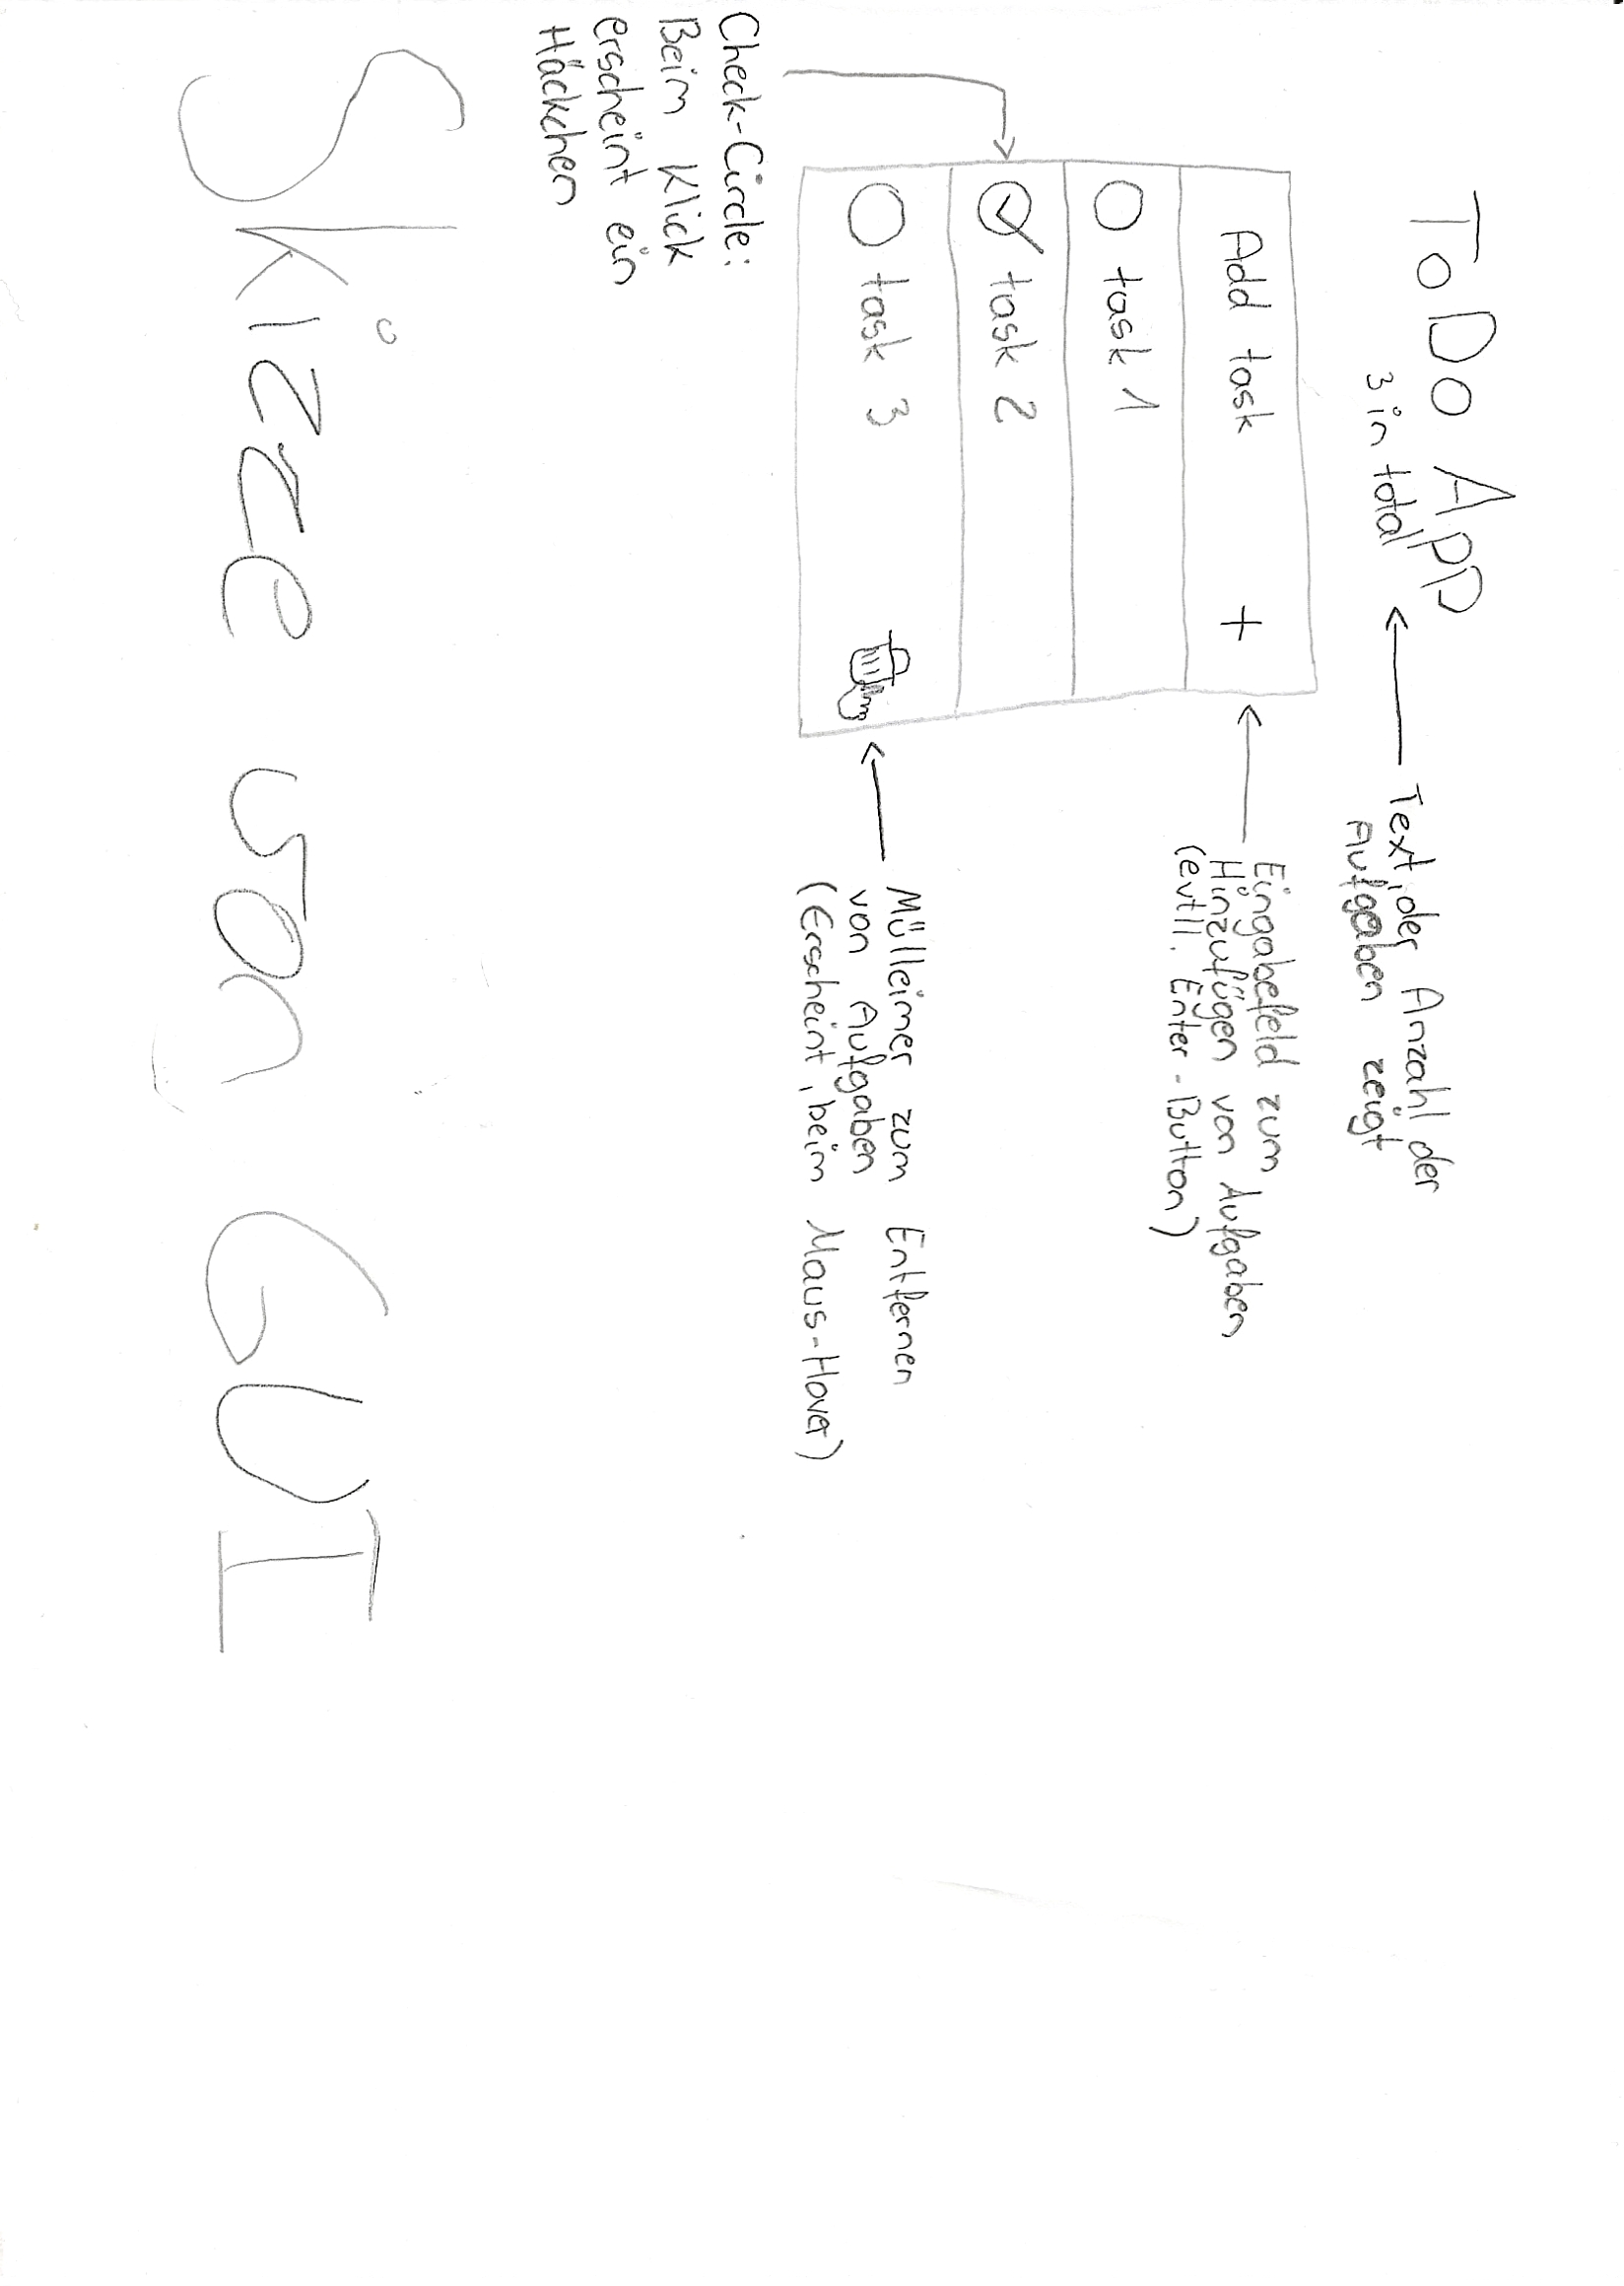 ToDo App
3 in total
Text, der Anzahl der
Aufgaben zeigt
Add task +
Eingabefeld zum
Hinzufügen von Aufgaben
(evtll. Enter-Button)
task 1
task 2
task 3
Mülleimer zum Entfernen
von Aufgaben
(Erscheint, beim Maus-Hover)
Check-Circle:
Beim Klick
erscheint ein
Häckchen
Skizze von GUI